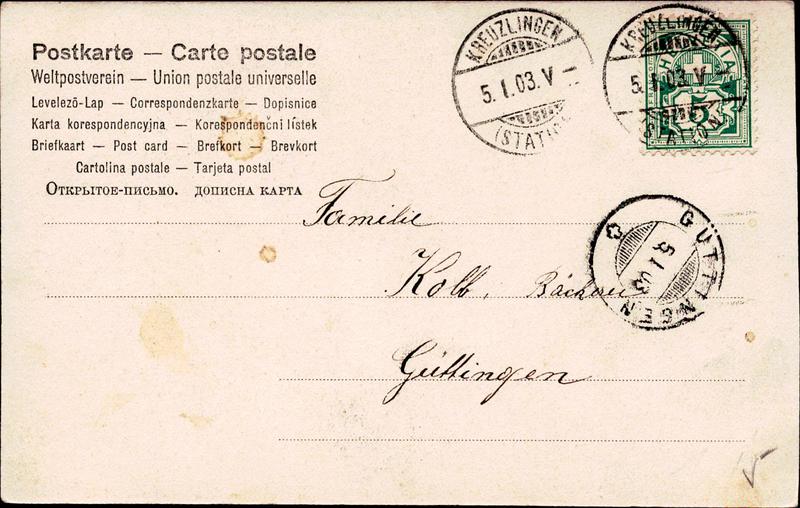 Postkarte — Carte postale
Weltpostverein — Union postale universelle
Levelezö-Lap — Correspondenzkarte — Dopisnice
Karta korespondencyjna — Korespondenční lístek
Briefkaart — Post card — Brefkort — Brevkort
Cartolina postale — Tarjeta postal
Открытое-письмо. дописна карта
KREUZLINGEN
5. I. 03. V —
(STATION)
KREUZLINGEN
5. I. 03. V —
(STATION)
HELVETIA
5
Familie
Kolb, Bäckerei
Güttingen
GÜTTINGEN
5 I 03